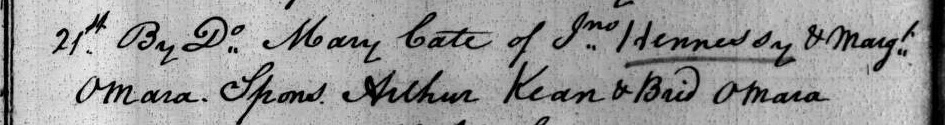 21st. By Do. Mary Cate of Jno. Hennessy & Margt.
OMara. Spons. Arthur Kean & Brid OMara